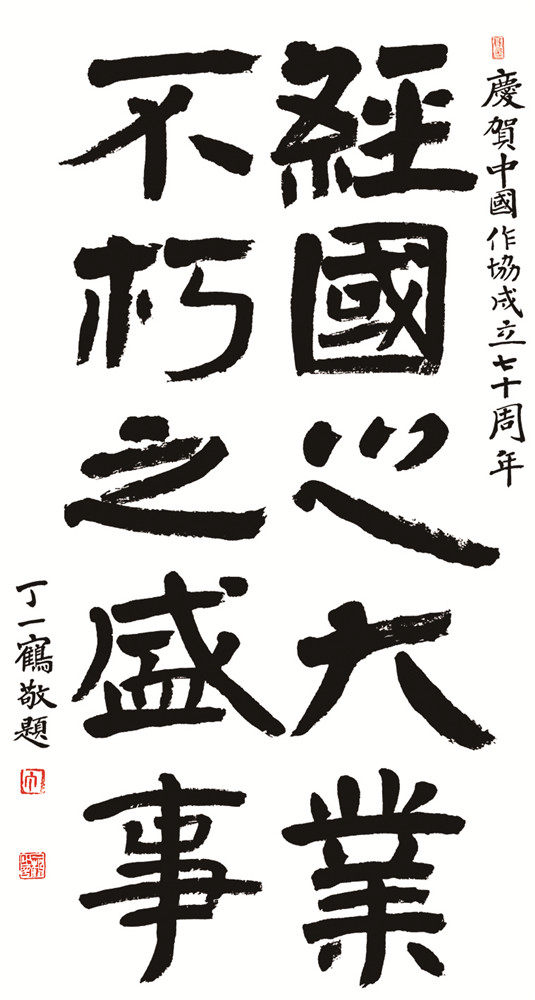 慶賀中國作協成立七十周年
經國之大業
不朽之盛事
丁一鶴敬題